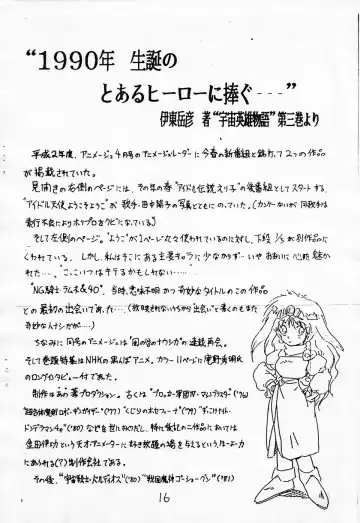 “1990年 生誕の
とあるヒーローに捧ぐ---”
伊東岳彦 著“宇宙英雄物語”第三巻より
平成2年度、アニメージュ4月号のアニメージュ・レーダーに今春の新番組と銘打って2つの作品
が掲載されていた。
見開きの右側のページには、その年の春“アイドル伝説えり子”の後番組としてスタートする
“アイドル天使ようこそようこ”が歌手・田中陽子の写真とともにのっていた。(カンケーないが同歌手は
素行不良によりホリプロをクビになっている)
そして左側のページ。“ようこ”が1ページ丸々使われているのに対し、下段1/3が別作品に
くわれている。しかし、私はそこにある主要キャラに少なからず…いやおおいに心魅かれ
た…。“こ、こいつはキテるかもしれない……”
“NG騎士ラムネ&40”、当時、意味不明かつ奇妙なタイトルのこの作品
との最初の出会いであった…。
奇妙なハナシだが…)
ちなみに同号のアニメージュは“風の谷のナウシカ”の連載再会。
そして巻頭特集はNHKの某んぱアニメ。カラー11ページに庵野秀明氏
のロングインタビュー付であった。
制作はあの葦プロダクション。古くは“ブロッカー軍団Ⅳ・マシンブラスター('76)
超合体魔術ロボ・ギンガイザー('77)“くじらのホセフィーナ”('79)“ずっこけナイト・
ドンデラマンチャ”('80)などを世におくりだし、特に後記の二作品においては
金田伊功という天才アニメーターに好き放題の場を与えるという
にあふれる(?)制作会社である。
その後、“宇宙戦士・バルディオス”('80)“戦国魔神ゴーショーグン”('81)
16